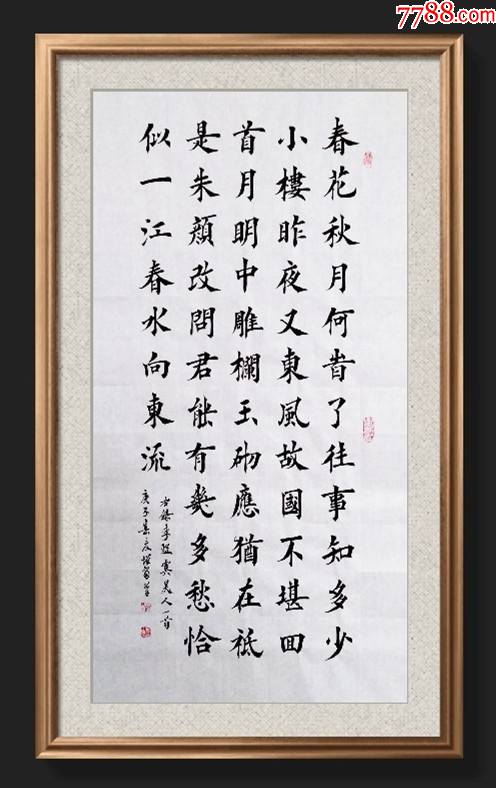 7788.com
春花秋月何旹了往事知多少
小樓昨夜又東風故國不堪回
首月明中雕欄玉砌應猶在祗
是朱顔改問君能有幾多愁恰
似一江春水向東流
右錄李煜虞美人一首
庚子